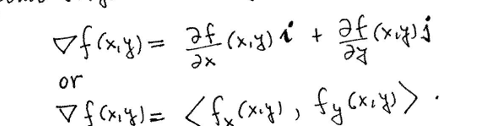 ∇f(x,y) = ∂f/∂x (x,y) i + ∂f/∂y (x,y) j
or
∇f(x,y) = ⟨f_x(x,y), f_y(x,y)⟩.